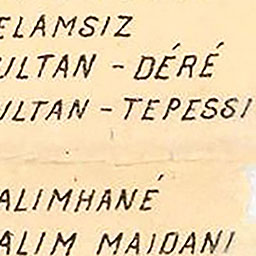 ELAMSIZ
ULTAN - DÉRÉ
ULTAN - TEPESSI
ALIMHANÉ
ALIM MAIDANI